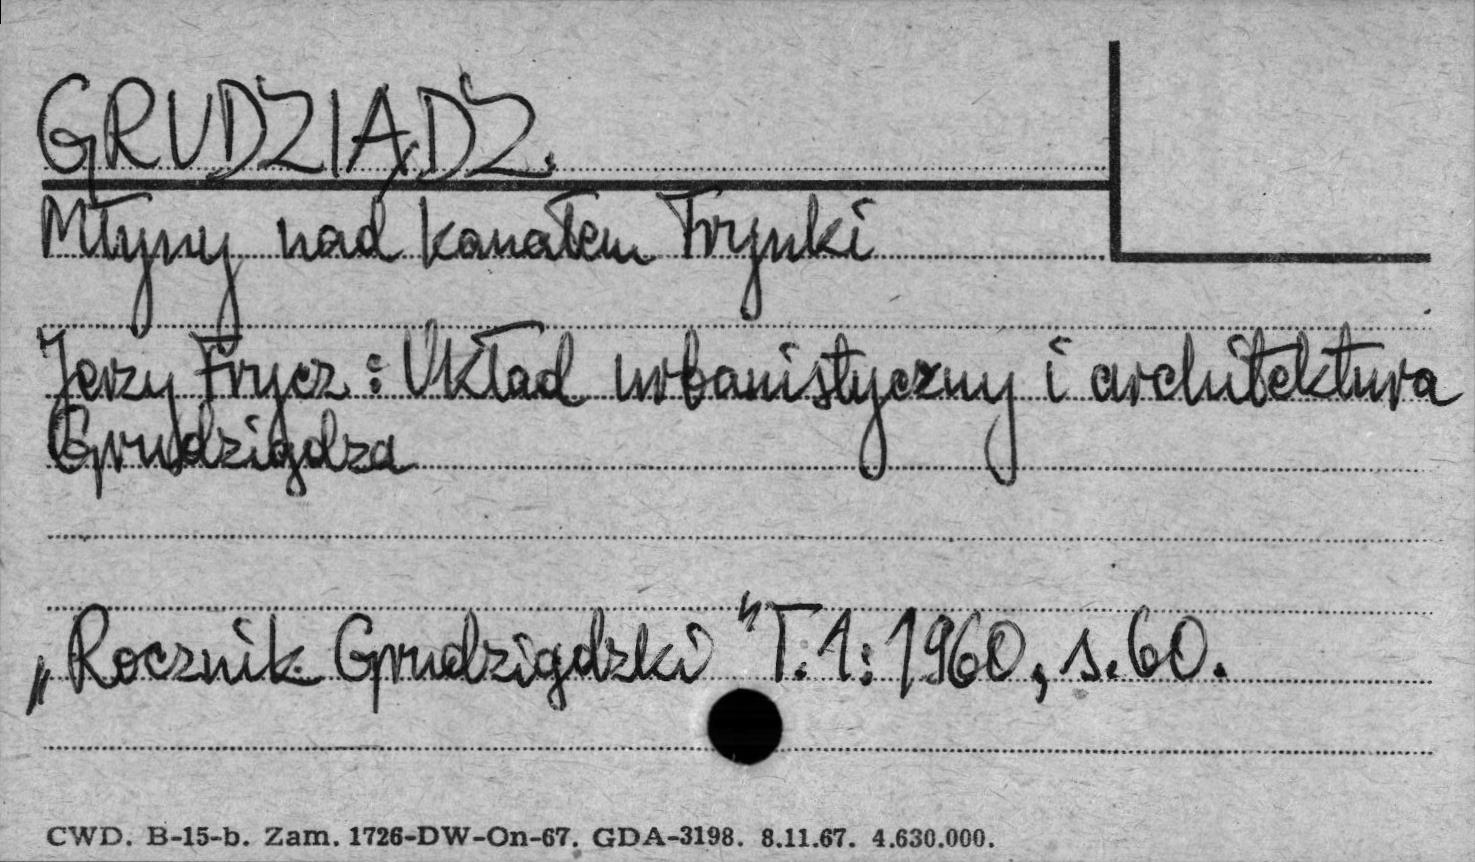 GRUDZIĄDZ.
Młyny nad kanałem Trynki
Jerzy Frycz: Układ urbanistyczny i architektura
Grudziądza
„Rocznik Grudziądzki" T.1: 1960, s. 60.
CWD. B-15-b. Zam. 1726-DW-On-67. GDA-3198. 8.11.67. 4.630.000.